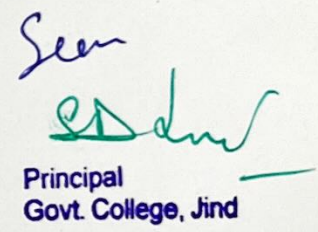 Seen
Principal
Govt. College, Jind